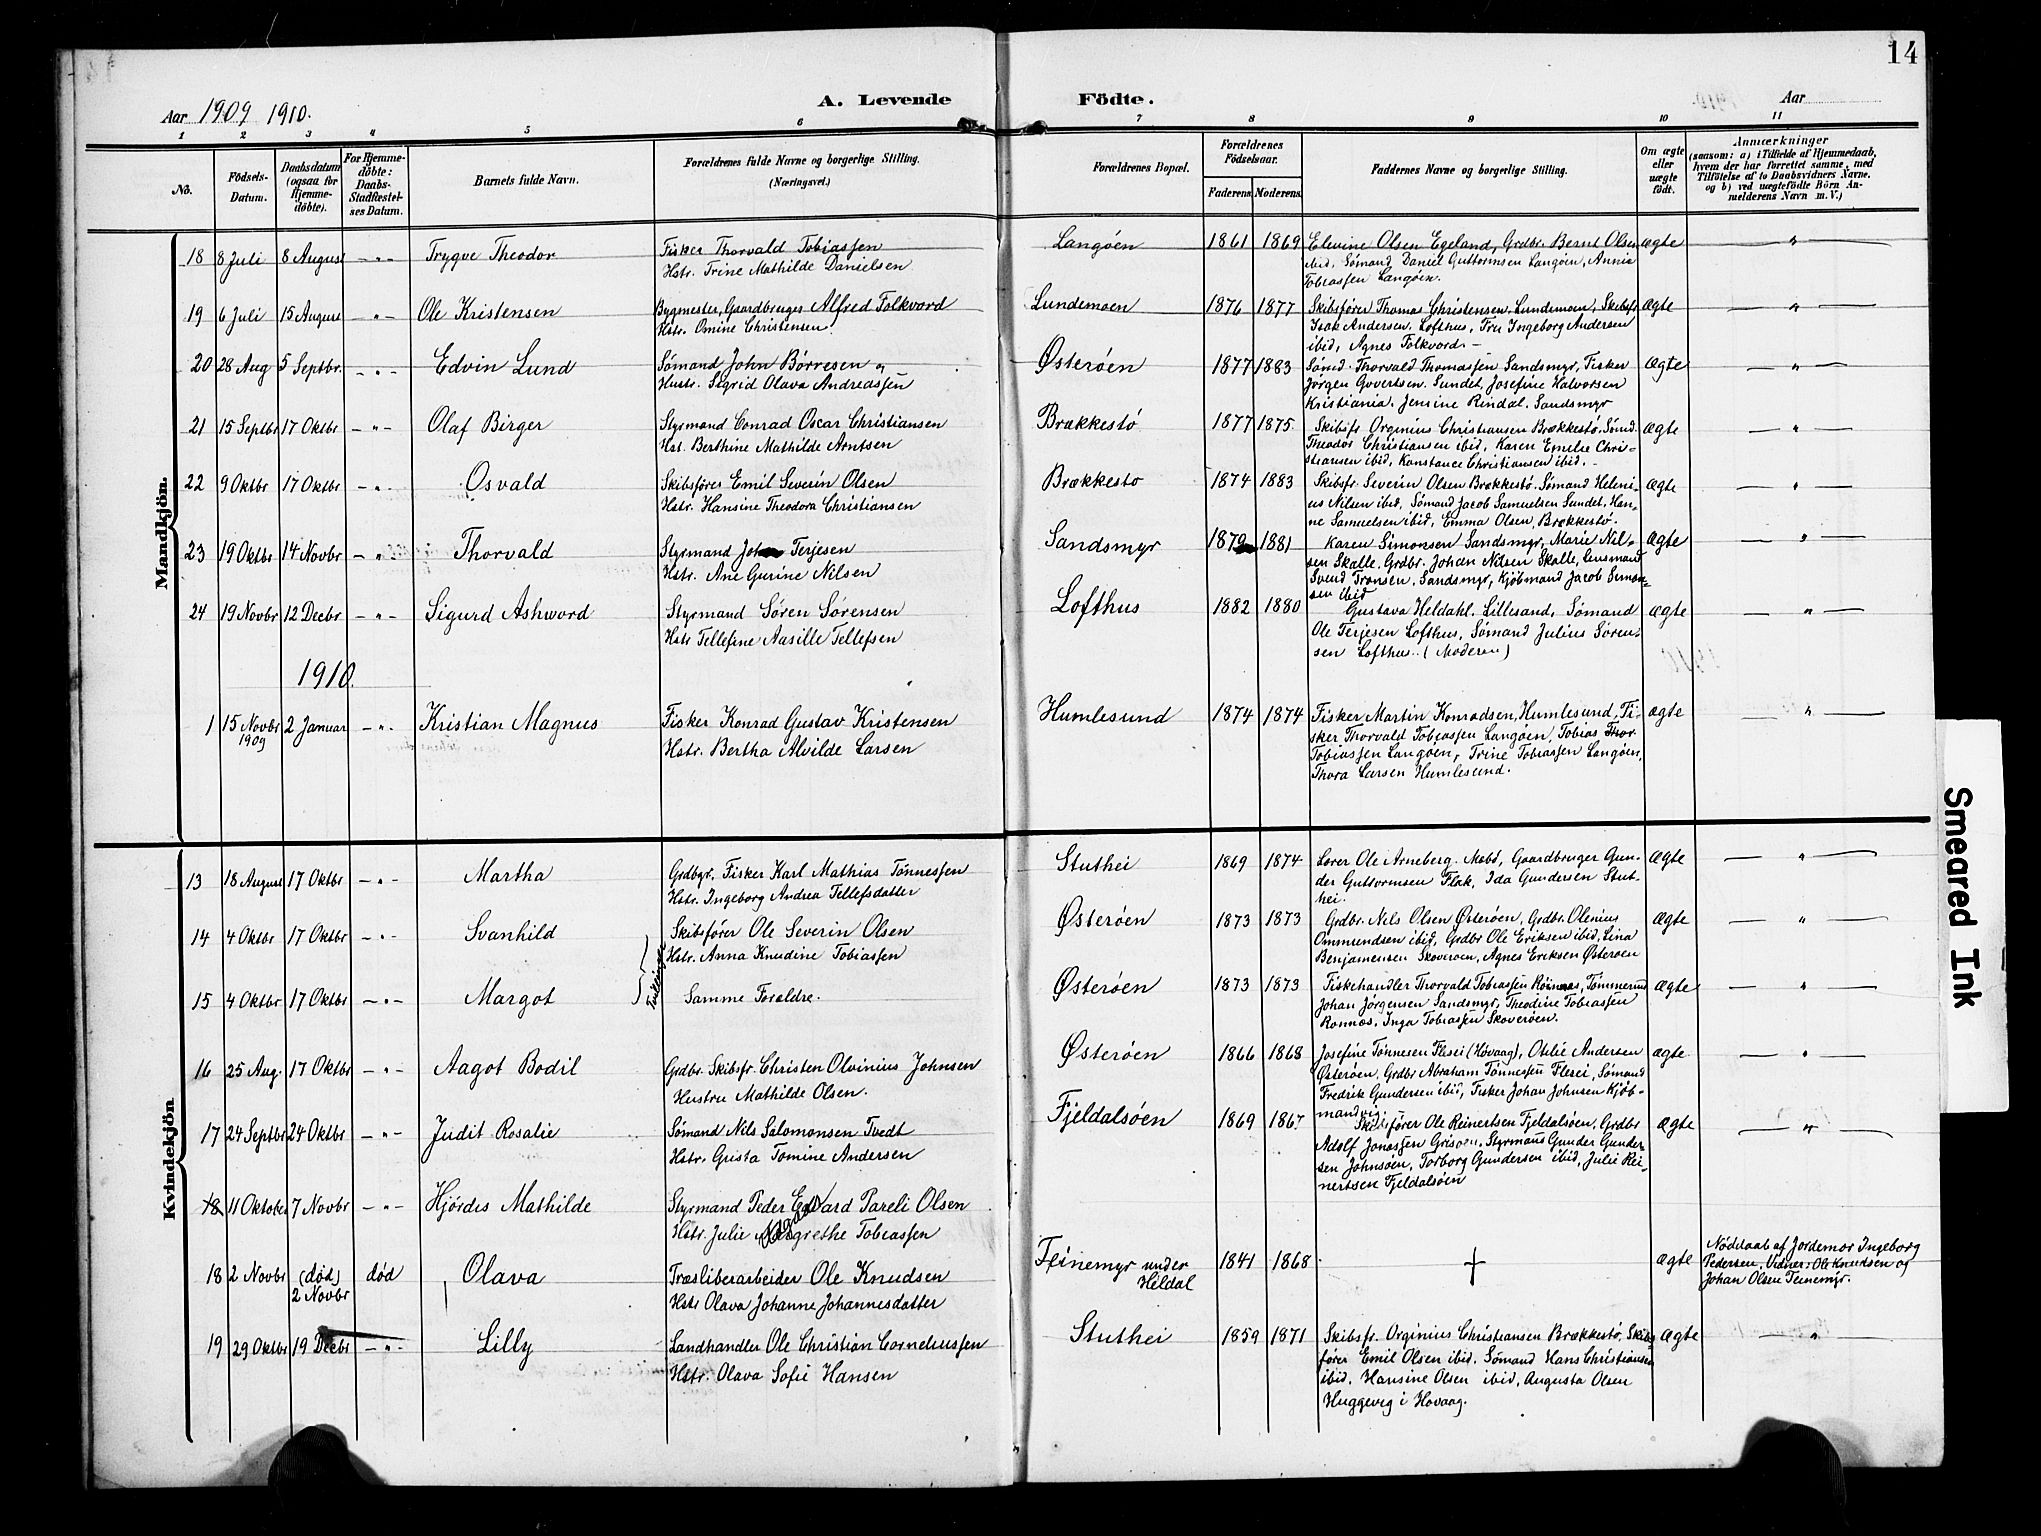 14
Aar 1909 1910.
A. Levende Födte.
Aar
1 2 3 4 5 6 7 8 9 10 11
Nö.
Födsels-Datum.
Daabsdatum (ogsaa for Hjemme-döbte).
For Hjemme-döbte: Daabs-Stadfæstel-ses Datum.
Barnets fulde Navn.
Forældrenes fulde Navne og borgerlige Stilling.
(Næringsvei.)
Forældrenes Bopæl.
Forældrenes Födselsaar.
Faderens. Moderens.
Faddernes Navne og borgerlige Stilling.
Om ægte eller uægte födt.
Anmærkninger
(saasom: a) i Tilfælde af Hjemmedaab,
hvem der har forrettet samme, med
Tilföielse af to Daabsvidners Navne.
og b) ved uægtefödte Börn An-
melderens Navn m. V.)
Mandkjön.
18 8 Juli 8 August - " - Trygve Theodor Fisker Thorvald Tobiassen Langöen 1861 1869 Elevine Olsen Egeland, Grdbr. Bernt Olsen ægte — " —
Hstr. Trine Mathilde Danielsen ibid, Sømand Daniel Guttormsen Langöen, Annie
Tobiassen Langöen.
19 6 Juli 15 August - " - Ole Kristensen Bygmester, Gaardbruger Alfred Folkvord Lundemoen 1876 1877 Skibsfører Thomas Christensen Lundemoen, Skibsfr ægte — " —
Hstr. Omine Christensen Isak Andersen, Lofthus, Fru Ingeborg Andersen
ibid, Agnes Folkvord. -
20 28 Aug 5 Septbr. - " - Edvin Lund Sømand John Børresen og Østerøen 1877 1883 Sömd. Thorvald Thomassen Sandsmyr, Fisker ægte — " —
Hustr. Sigrid Olava Andreassen Jörgen Govertsen. Sundet, Josefine Halvorsen
Kristiania. Jensine Rindal. Sandsmyr
21 15 Septbr 17 Oktbr - " - Olaf Birger Styrmand Conrad Oscar Christiansen Brækkestø 1877 1875. Skibsfr Orginius Christiansen Brækkestø, Sömd. ægte — " —
Hst. Berthine Mathilde Arntsen Theodor Christiansen ibid, Karen Emelie Chri-
stiansen ibid, Konstance Christiansen ibid. -
22 9 Oktbr 17 Oktbr - " - Osvald Skibsfører Emil Severin Olsen Brækkestø 1874 1883 Skibsfr. Severin Olsen Brækkestö. Sömand Heleni- ægte — " —
Hstr. Hansine Theodora Christiansen us Nilsen ibid, Sömand Jacob Samuelsen Sundet, Han-
ne Samuelsen ibid, Emma Olsen, Brækkestö.
23 19 Oktbr 14 Novbr - " - Thorvald Styrmand Johan Terjesen Sandsmyr 1879 1881 Karen Simonsen Sandsmyr, Marie Nil- ægte — " —
Hstr. Ane Gurine Nilsen sen Skalle, Grdbr. Johan Nilsen Skalle, Lensmand
Svend Tronsen, Sandsmyr, Kjöbmand Jacob Simon-
sen ibid
24 19 Novbr 12 Decbr - " - Sigurd Ashword Styrmand Søren Sørensen Lofthus 1882 1880 Gustava Heldahl. Lillesand, Sömand ægte — " —
Hstr Tellefine Aasille Tellefsen Ole Terjesen Lofthus, Sömand Julius Sören-
sen Lofthus. (Moderen)
1910.
1 15 Novbr 1909 2 Januar - " - Kristian Magnus Fisker Konrad Gustav Kristensen Humlesund 1874 1874 Fisker Martin Konradsen, Humlesund, Fi- ægte — " —
Hstr. Bertha Alvilde Larsen sker Thorvald Tobiassen Langöen, Tobias Thor-
Tobiassen Langöen, Trine Tobiassen Langöen,
Thora Larsen Humlesund.
Kvindekjön
13 18 August 17 Oktbr - " - Martha Grdbgr. Fisker Karl Mathias Tønnessen Stuthei 1869 1874 Lærer Ole Arneberg. Mabö, Gaardbruger Gun- ægte — " —
Hstr. Ingeborg Andrea Tellefsdatter der Guttormsen Flak, Ida Gundersen Stut-
hei.
14 4 Oktbr 17 Oktbr - " - Svanhild Skibsfører Ole Severin Olsen Østerøen 1873 1873 Grdbr. Nils Olsen Østerøen, Grdbr. Olenius ægte — " —
Hstr. Anna Knudine Tobiassen Ommundsen ibid, Grdbr Ole Eriksen ibid, Lina
Benjamensen Skoveroen, Agnes Eriksen Østerøen
Tvillinger
15 4 Oktbr 17 Oktbr - " - Margot Samme Forældre. Østerøen 1873 1873 Fiskehandler Thorvald Tobiassen Rönnæs, Tömmermd ægte — " —
Johan Jörgensen Sandsmyr, Theodine Tobiassen
Ronnæs, Inga Tobiassen Skoveröen.
16 25 Aug. 17 Oktbr - " - Aagot Bodil Grdbr. Skibsfr. Christen Olvinius Johnsen Østerøen 1866 1868 Josefine Tönnesen Flesei (Høvaag), Otilie Andersen ægte — " —
Hustru Mathilde Olsen. Østerøen, Grdbr Abraham Tönnessen Flesei, Sömand
Fredrik Gundersen ibid, Fisker Johan Johnsen Kjöb-
mandvig.
17 24 Septbr 24 Oktbr - " - Judit Rosalie Sømand Nils Salomonsen Tvedt Fjeldalsøen 1869 1867 Skibsfører Ole Reinertsen Fjeldalsøen, Grdbr ægte — " —
Hstr. Grista Tomine Andersen Adolf Jonassen Grisøen. Styrmand Gunder Gunder-
sen Johnsöen, Torborg Gundersen ibid, Julie Rei-
nertsen Fjeldalsöen
18 11 Oktober 7 Novbr - " - Hjördis Mathilde Styrmand Peder Edvard Pareli Olsen
Hstr. Julie Margrethe Tobiassen
18 2 Novbr (død) 2 Novbr død Olava Træsliberarbeider Ole Knudsen Teinemyr under Heldal 1841 1868 ægte Nöddaab af Jordemor Ingeborg
Hstr Olava Johanne Johannesdatter Pedersen, Vidner: Ole Knudsen og
Johan Olsen Teinemyr.
19 29 Oktbr 19 Decbr - " - Lilly Landhandler Ole Christian Corneliussen Stuthei 1859 1871 Skibsfr. Orginius Christiansen Brækkestö, Skibs- ægte — " —
Hstr. Olava Sofie Hansen fører Emil Olsen ibid. Sömand Hans Christiansen
ibid. Hansine Olsen ibid, Augusta Olsen
Huggevig i Høvaag.
Smeared Ink